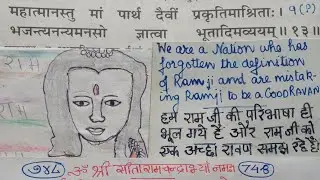 महात्मानस्तु मां पार्थ दैवीं प्रकृतिमाश्रिताः । 9(P)
भजन्त्यनन्यमनसो ज्ञात्वा भूतादिमव्ययम् ॥ १३ ॥
राम
We are a Nation who has
forgotten the definition
of Ramji and are mistak-
ing Ramji to be a GOODRAVAN
हम राम जी की परिभाषा ही
भूल गये हैं और राम जी को
एक अच्छा रावण समझ रहे हैं
७४८ ॐ श्री सीतारामचन्द्राभ्यां नमः 748